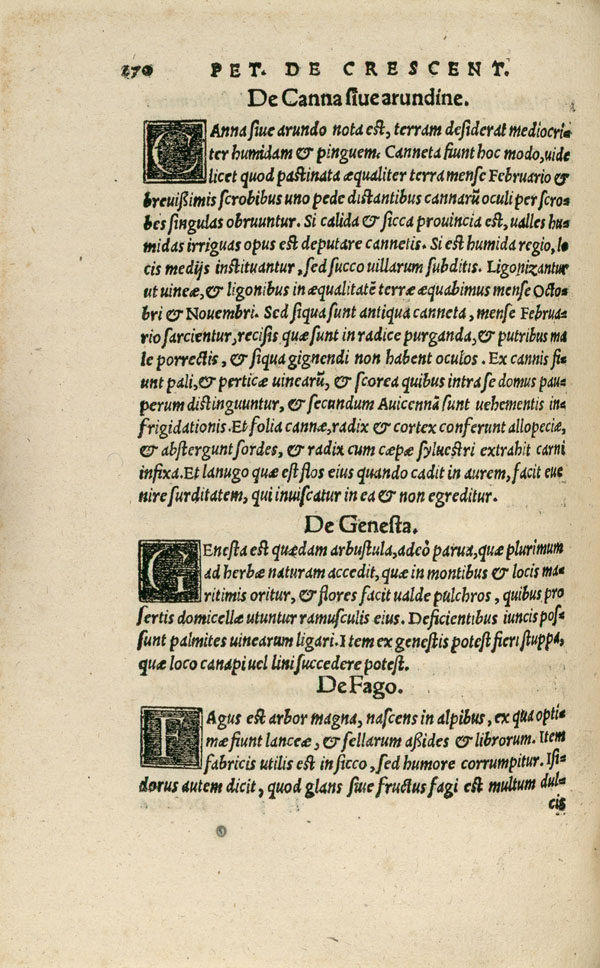 270 PET. DE CRESCENT.
De Canna siue arundine.
CAnna siue arundo nota est, terram desiderat mediocri-
ter humidam & pinguem. Canneta fiunt hoc modo, uide
licet quod pastinata æqualiter terra mense Februario &
breuißimis scrobibus uno pede distantibus cannarū oculi per scro-
bes singulas obruuntur. Si calida & sicca prouincia est, ualles hu-
midas irriguas opus est deputare cannetis. Si est humida regio, lo-
cis medijs instituantur, sed succo uillarum subditis. Ligonizantur
ut uineæ, & ligonibus in æqualitatē terræ æquabimus mense Octo-
bri & Nouembri. Sed si qua sunt antiqua canneta, mense Februa-
rio sarcientur, recisis quæ sunt in radice purganda, & putribus ma
le porrectis, & siqua gignendi non habent oculos. Ex cannis fi-
unt pali, & perticæ uinearū, & scorea quibus intra se domus pau-
perum distinguuntur, & secundum Auicennā sunt uehementis in-
frigidationis. Et folia cannæ, radix & cortex conferunt allopeciæ,
& abstergunt sordes, & radix cum cæpæ syluestri extrahit carni
infixa. Et lanugo quæ est flos eius quando cadit in aurem, facit eue
nire surditatem, qui inuiscatur in ea & non egreditur.
De Genesta.
GEnesta est quædam arbustula, adeò parua, quæ plurimum
ad herbæ naturam accedit, quæ in montibus & locis ma-
ritimis oritur, & flores facit ualde pulchros, quibus pro
sertis domicellæ utuntur ramusculis eius. Deficientibus iuncis pos-
sunt palmites uinearum ligari. Item ex genestis potest fieri stuppa,
quæ loco canapi uel lini succedere potest.
De Fago.
FAgus est arbor magna, nascens in alpibus, ex qua opti-
mæ fiunt lanceæ, & sellarum aßides & librorum. Item
fabricis utilis est in sicco, sed humore corrumpitur. Isi-
dorus autem dicit, quod glans siue fructus fagi est multum dul-
cis